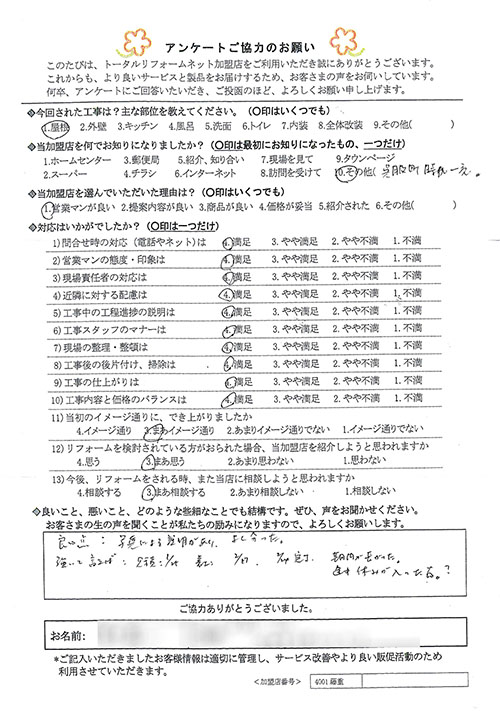 アンケートご協力のお願い
このたびは、トータルリフォームネット加盟店をご利用いただき誠にありがとうございます。
これからも、より良いサービスと製品をお届けするため、お客さまの声をお伺いしています。
何卒、アンケートにご回答いただき、ご投函のほど、よろしくお願い申し上げます。
※今回された工事は？主な部位を教えてください。（〇印はいくつでも）
1.屋根 2.外壁 3.キッチン 4.風呂 5.洗面 6.トイレ 7.内装 8.全体改装 9.その他( )
※当加盟店を何でお知りになりましたか？（〇印は最初にお知りになったもの、一つだけ）
1.ホームセンター 3.郵便局 5.紹介、知り合い 7.現場を見て 9.タウンページ
2.スーパー 4.チラシ 6.インターネット 8.訪問を受けて 10.その他(
※当加盟店を選んでいただいた理由は？（〇印はいくつでも）
1.営業マンが良い 2.提案内容が良い 3.商品が良い 4.価格が妥当 5.紹介された 6.その他( )
※対応はいかがでしたか？（〇印は一つだけ）
1)問合せ時の対応（電話やネット）は 4.満足 3.やや満足 2.やや不満 1.不満
2)営業マンの態度・印象は 4.満足 3.やや満足 2.やや不満 1.不満
3)現場責任者の対応は 4.満足 3.やや満足 2.やや不満 1.不満
4)近隣に対する配慮は 4.満足 3.やや満足 2.やや不満 1.不満
5)工事中の工程進捗の説明は 4.満足 3.やや満足 2.やや不満 1.不満
6)工事スタッフのマナーは 4.満足 3.やや満足 2.やや不満 1.不満
7)現場の整理・整頓は 4.満足 3.やや満足 2.やや不満 1.不満
8)工事後の後片付け、掃除は 4.満足 3.やや満足 2.やや不満 1.不満
9)工事の仕上がりは 4.満足 3.やや満足 2.やや不満 1.不満
10)工事内容と価格のバランスは 4.満足 3.やや満足 2.やや不満 1.不満
11)当初のイメージ通りに、でき上がりましたか
4.イメージ通り 3.まあイメージ通り 2.あまりイメージ通りでない 1.イメージ通りでない
12)リフォームを検討されている方がおられた場合、当加盟店を紹介しようと思われますか
4.思う 3.まあ思う 2.あまり思わない 1.思わない
13)今後、リフォームをされる時、また当店に相談しようと思われますか
4.相談する 3.まあ相談する 2.あまり相談しない 1.相談しない
※良いこと、悪いこと、どのような些細なことでも結構です。ぜひ、声をお聞かせください。
お客さまの生の声を聞くことが私たちの励みになりますので、よろしくお願いします。
良い点：
期間が長かった。
休みが入った為。？
ご協力ありがとうございました。
お名前:
*ご記入いただきましたお客様情報は適切に管理し、サービス改善やより良い販促活動のため
利用させていただきます。
<加盟店番号> 4001 藤重